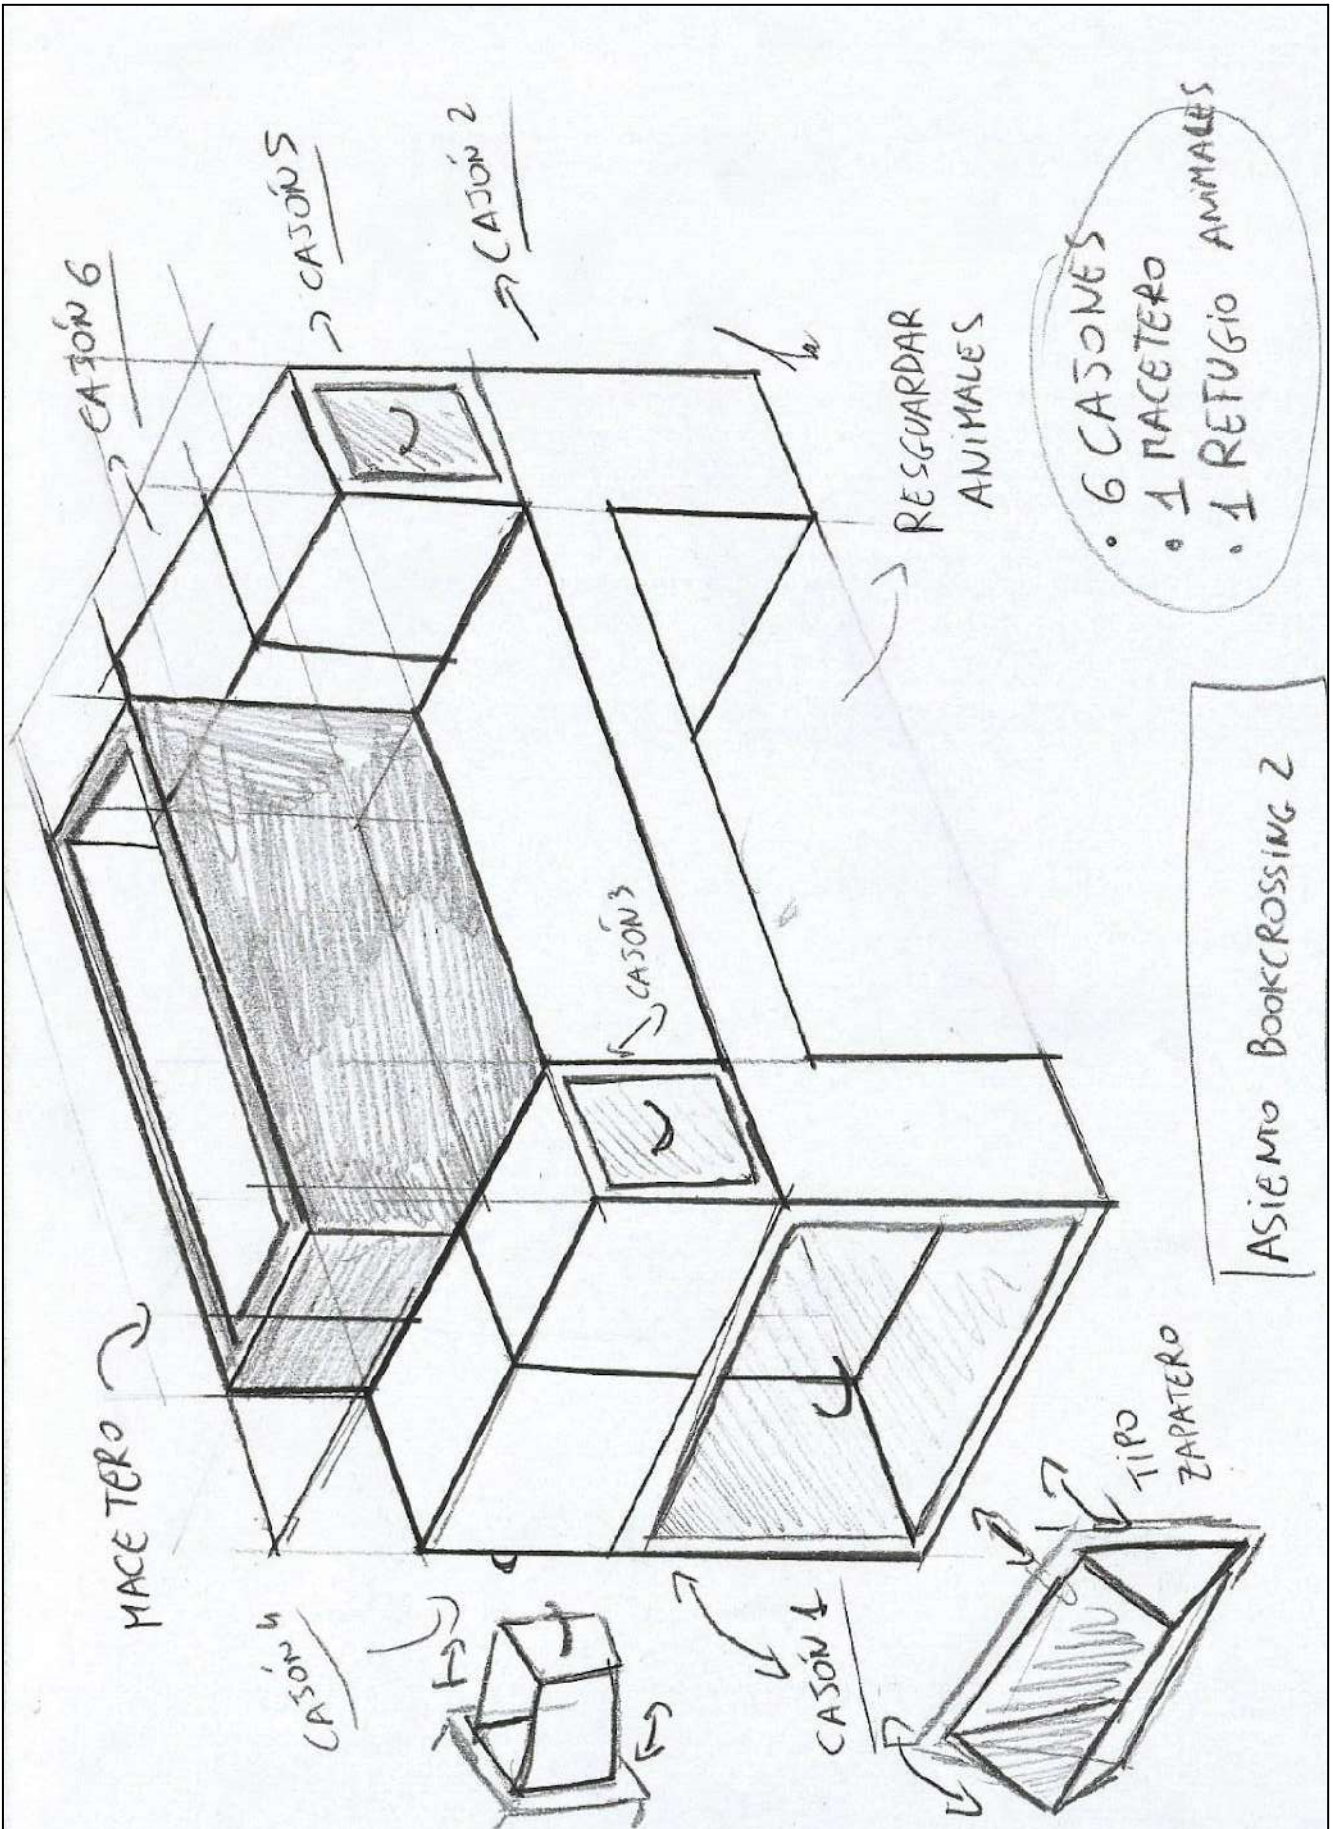 MACETERO
CAJÓN 6
CAJÓN 5
CAJÓN 2
CAJÓN 4
CAJÓN 3
CAJÓN 1
RESGUARDAR
ANIMALES
TIPO
ZAPATERO
• 6 CAJONES
• 1 MACETERO
• 1 REFUGIO ANIMALES
ASIENTO BOOKCROSSING 2